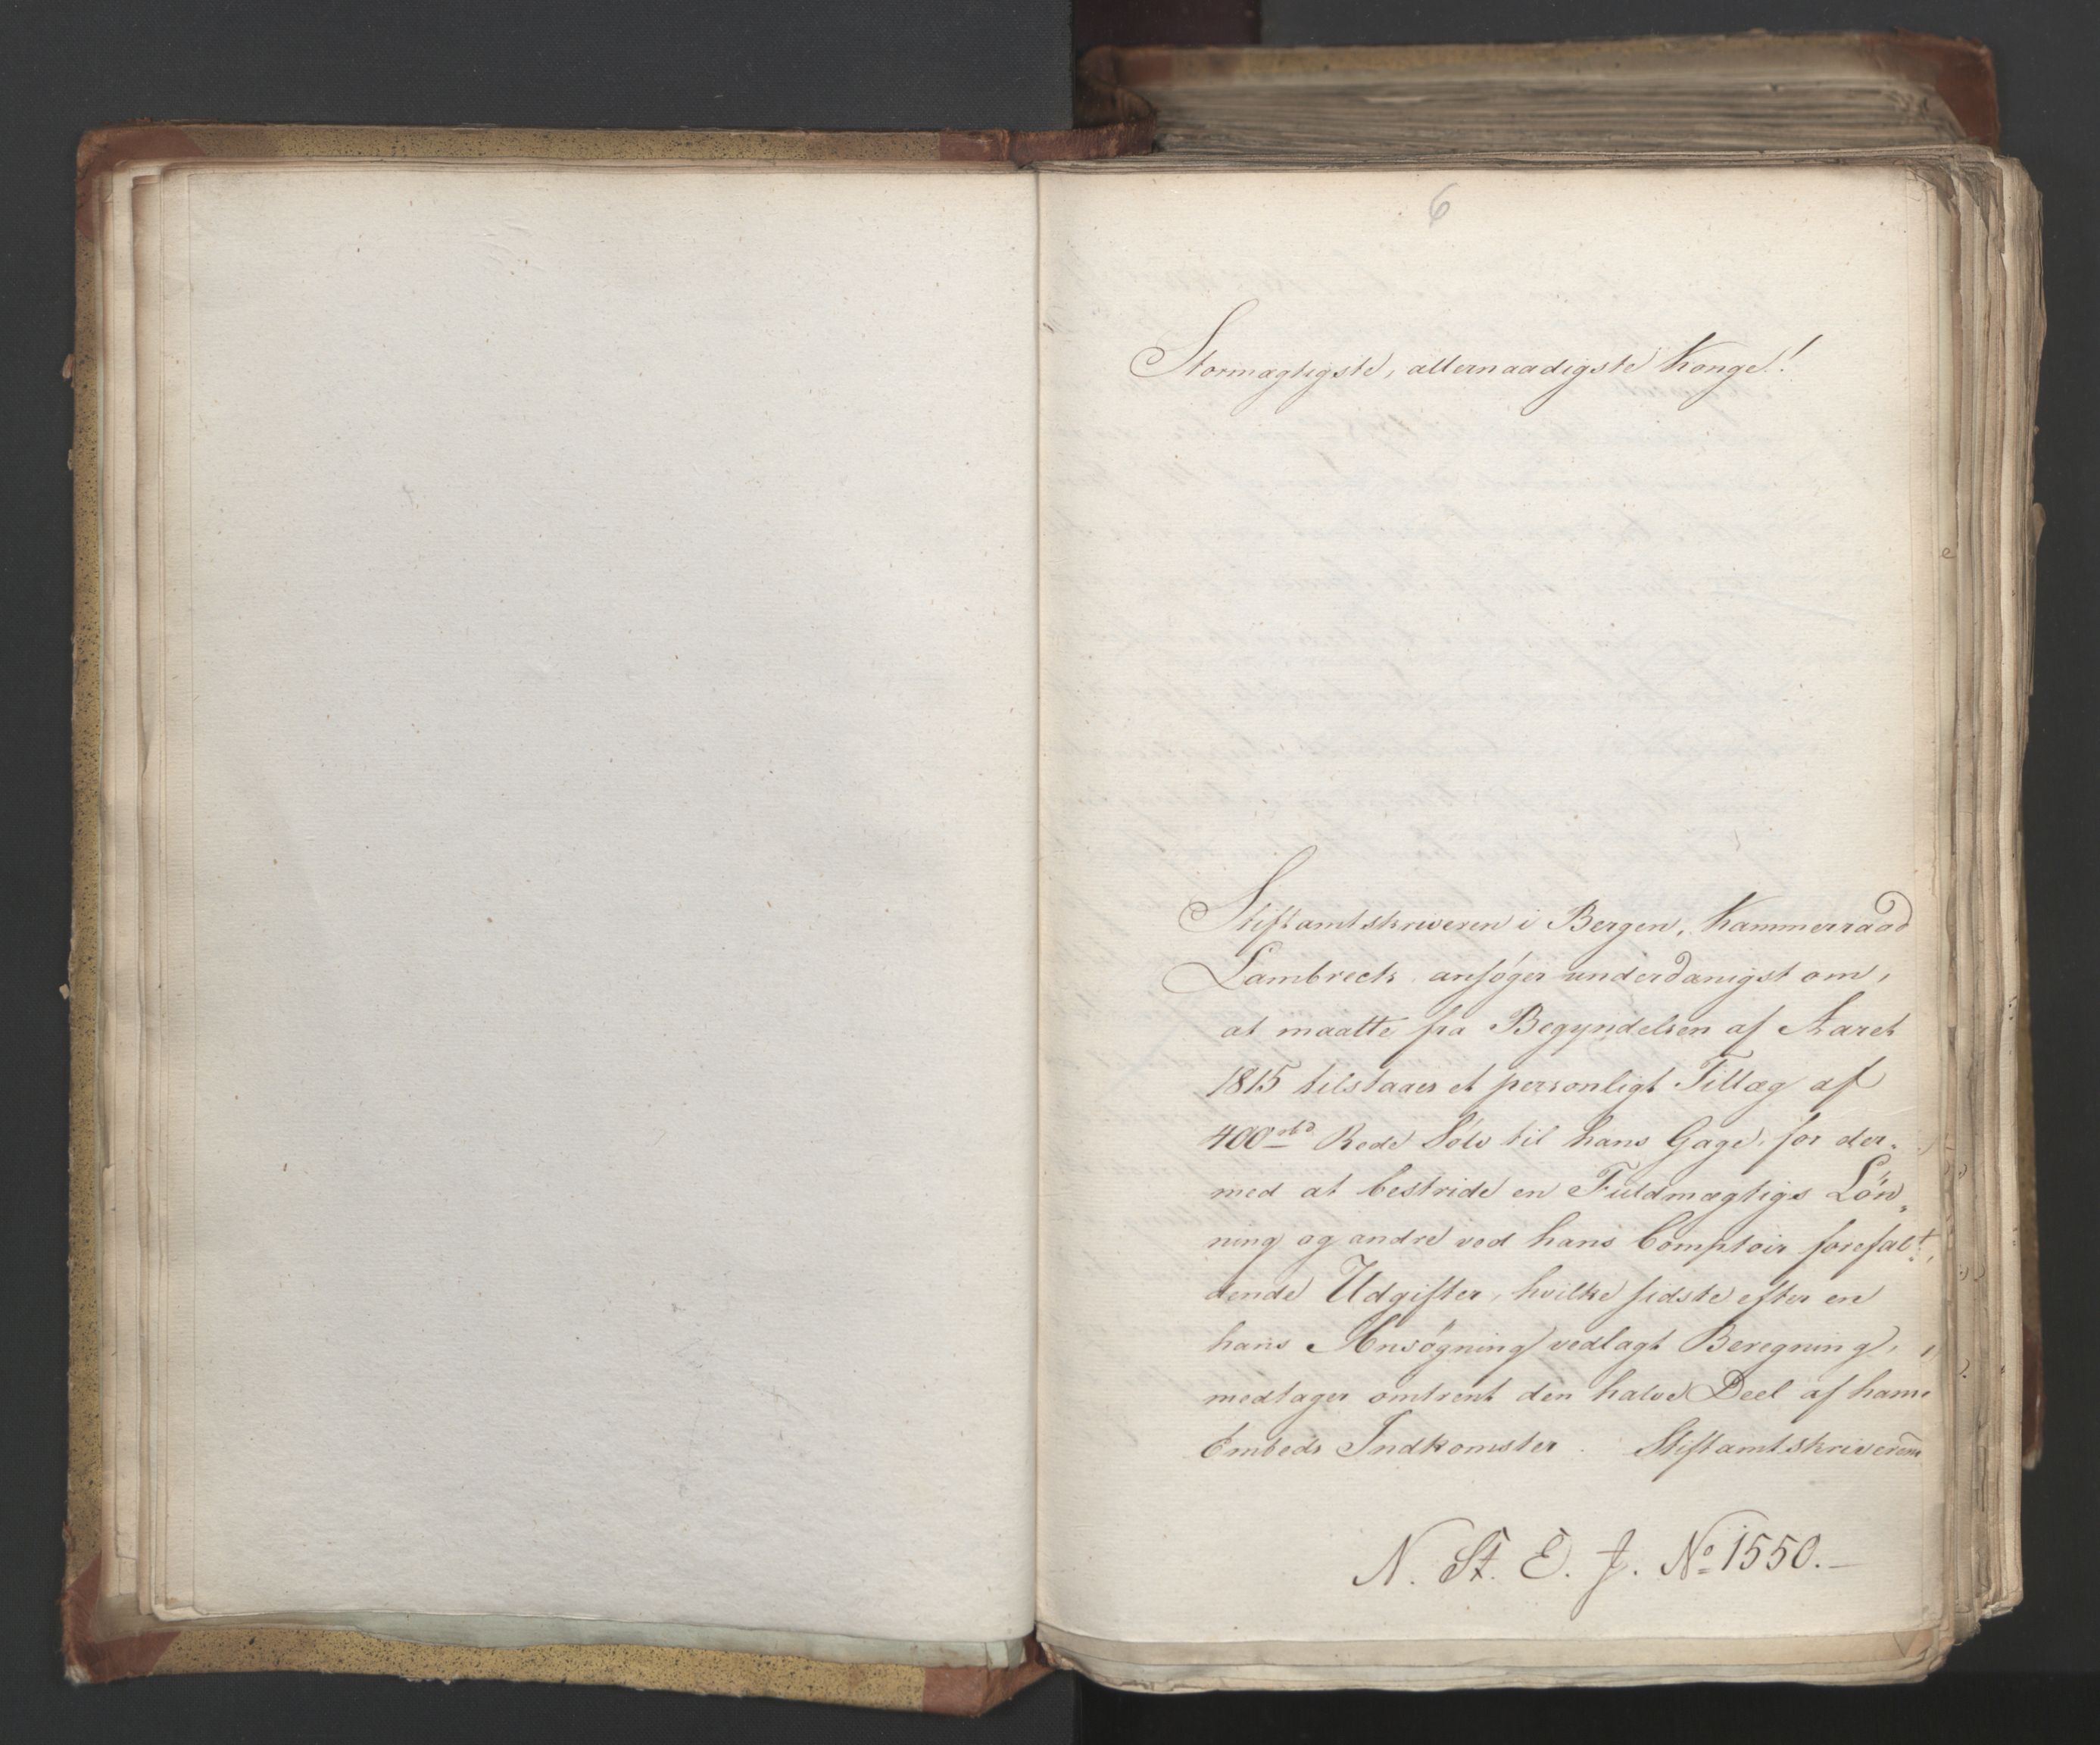 6
Stormægtigste, allernaadigste Konge!
Stiftamtskriveren i Bergen, Kammerraad
Lambrechs ansøger underdanigst om,
at maatte fra Begyndelsen af Aaret
1815 tilstaaes et personligt Tillæg af
400 rbd. Rede Sølv til hans Gage, for der-
med at bestride en Fuldmægtigs Løn-
ning og andre ved hans Comptoir forefal-
dende Udgifter, hvilke sidste efter en
hans Ansøgning vedlagt Beregning,
medtager omtrent den halve Deel af hans
Embeds Indkomster. Stiftamtskriverens
N. St. E. J. No 1550.